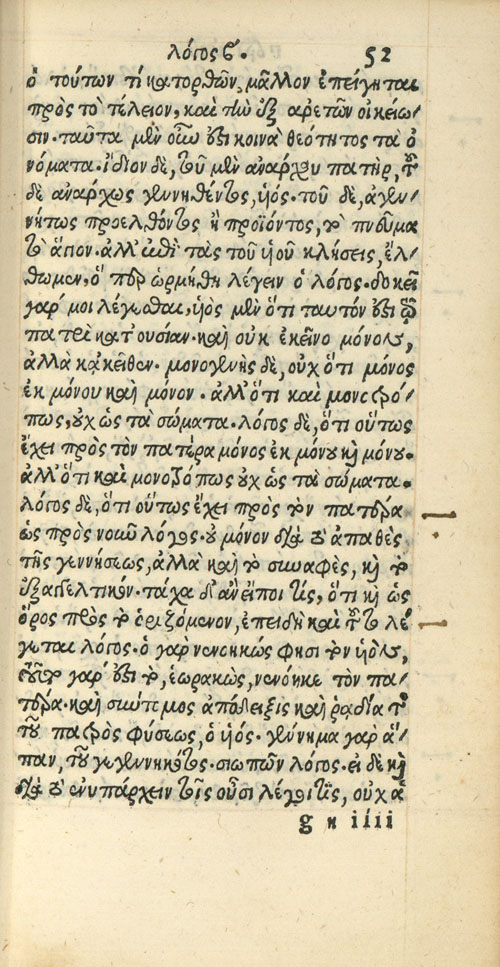 λόγος ϛ. 52
ὁ τούτων τί κατορθῶν, μᾶλλον ἐπείγηται
πρὸς τὸ τέλειον, καὶ τὴν ἐξ ἀρετῶν οἰκείω-
σιν· ταῦτα μὲν οὖν ἔτι κοινὰ θεότητος τὰ ὀ
νόματα. ἴδιον δὲ, τοῦ μὲν ἀνάρχου πατὴρ, τοῦ
δὲ ἀνάρχως γεννηθέντος, ὑιός· τοῦ δὲ, ἀγεν-
νήτως προελθόντος ἢ προϊόντος, τὸ πνεῦμα
τὸ ἅγιον. ἀλλ' ἐπὶ τὰς τοῦ ὑιοῦ κλήσεις, ἔλ-
θωμεν, ὅ περ ὡρμήθη λέγειν ὁ λόγος. δοκεῖ
γάρ μοι λέγεσθαι, ὑιὸς μὲν ὅτι ταυτόν ἐστι τῷ
πατρὶ κατ' ουσίαν· καὶ οὐκ ἐκεῖνο μόνον,
ἀλλὰ κἀκεῖθεν. μονογενὴς δὲ, οὐχ ὅτι μόνος
ἐκ μόνου καὶ μόνον. ἀλλ' ὅτι καὶ μονοτρό-
πως, οὐχ ὡς τὰ σώματα. λόγος δὲ, ὅτι οὕτως
ἔχει πρὸς τὸν πατέρα μόνος ἐκ μόνου καὶ μόνον.
ἀλλ' ὅτι καὶ μονοτρόπως οὐχ ὡς τὰ σώματα.
λόγος δὲ, ὅτι οὕτως ἔχει πρὸς τὸν πατέρα
ὡς πρὸς νοῦν λόγος. οὐ μόνον διὰ τὸ ἀπαθὲς
τῆς γεννήσεως, ἀλλὰ καὶ τὸ συναφὲς, καὶ τὸ
ἐξαγγελτικόν. τάχα δ' ἂν εἴποι τίς, ὅτι καὶ ὡς
ὅρος πρὸς τὸ ὁριζόμενον, ἐπειδὴ καὶ τοῦτο λέ
γεται λόγος. ὁ γὰρ νενοηκώς φησι τὸν ὑιὸν,
τοῦτο γάρ ἐστι τὸ, ἑωρακὼς, νενόηκε τὸν πα-
τέρα. καὶ σύντομος ἀπόδειξις καὶ ῥᾳδία τῆς
τοῦ πατρὸς φύσεως, ὁ ὑιός. γέννημα γὰρ ἅ-
παν, τοῦ γεγεννηκότος. σιωπῶν λόγος. εἰ δὲ καὶ
διὰ τὸ ἐνυπάρχειν τοῖς οὖσι λέγοι τίς, οὐχ ἁ
g κ iiii